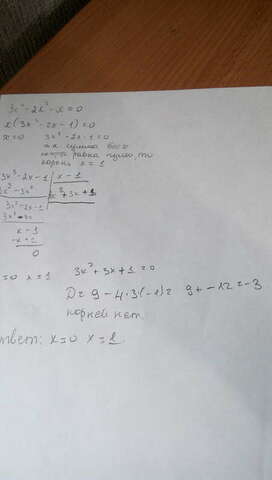 3x⁴-2x²-x=0
x(3x³-2x-1)=0
x=0 3x³-2x-1=0
т.к сумма всех
равна нулю, то
корень x=1
3x³-2x-1 | x-1
3x³-3x² 3x²+3x+1
3x²-2x-1
3x²-3x
x-1
x-1
0
=0 x=1 3x²+3x+1=0
D=9-4·3(-1)= 9+-12=-3
корней нет.
ответ: x=0 x=1